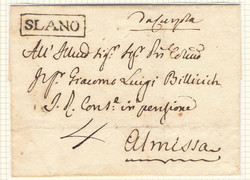 SLANO
All' Illmo Sigr Sigr Prn Colmo
Sigr Giacomo Luigi Billinich
I. R. Conte in pensione
4
Almissa